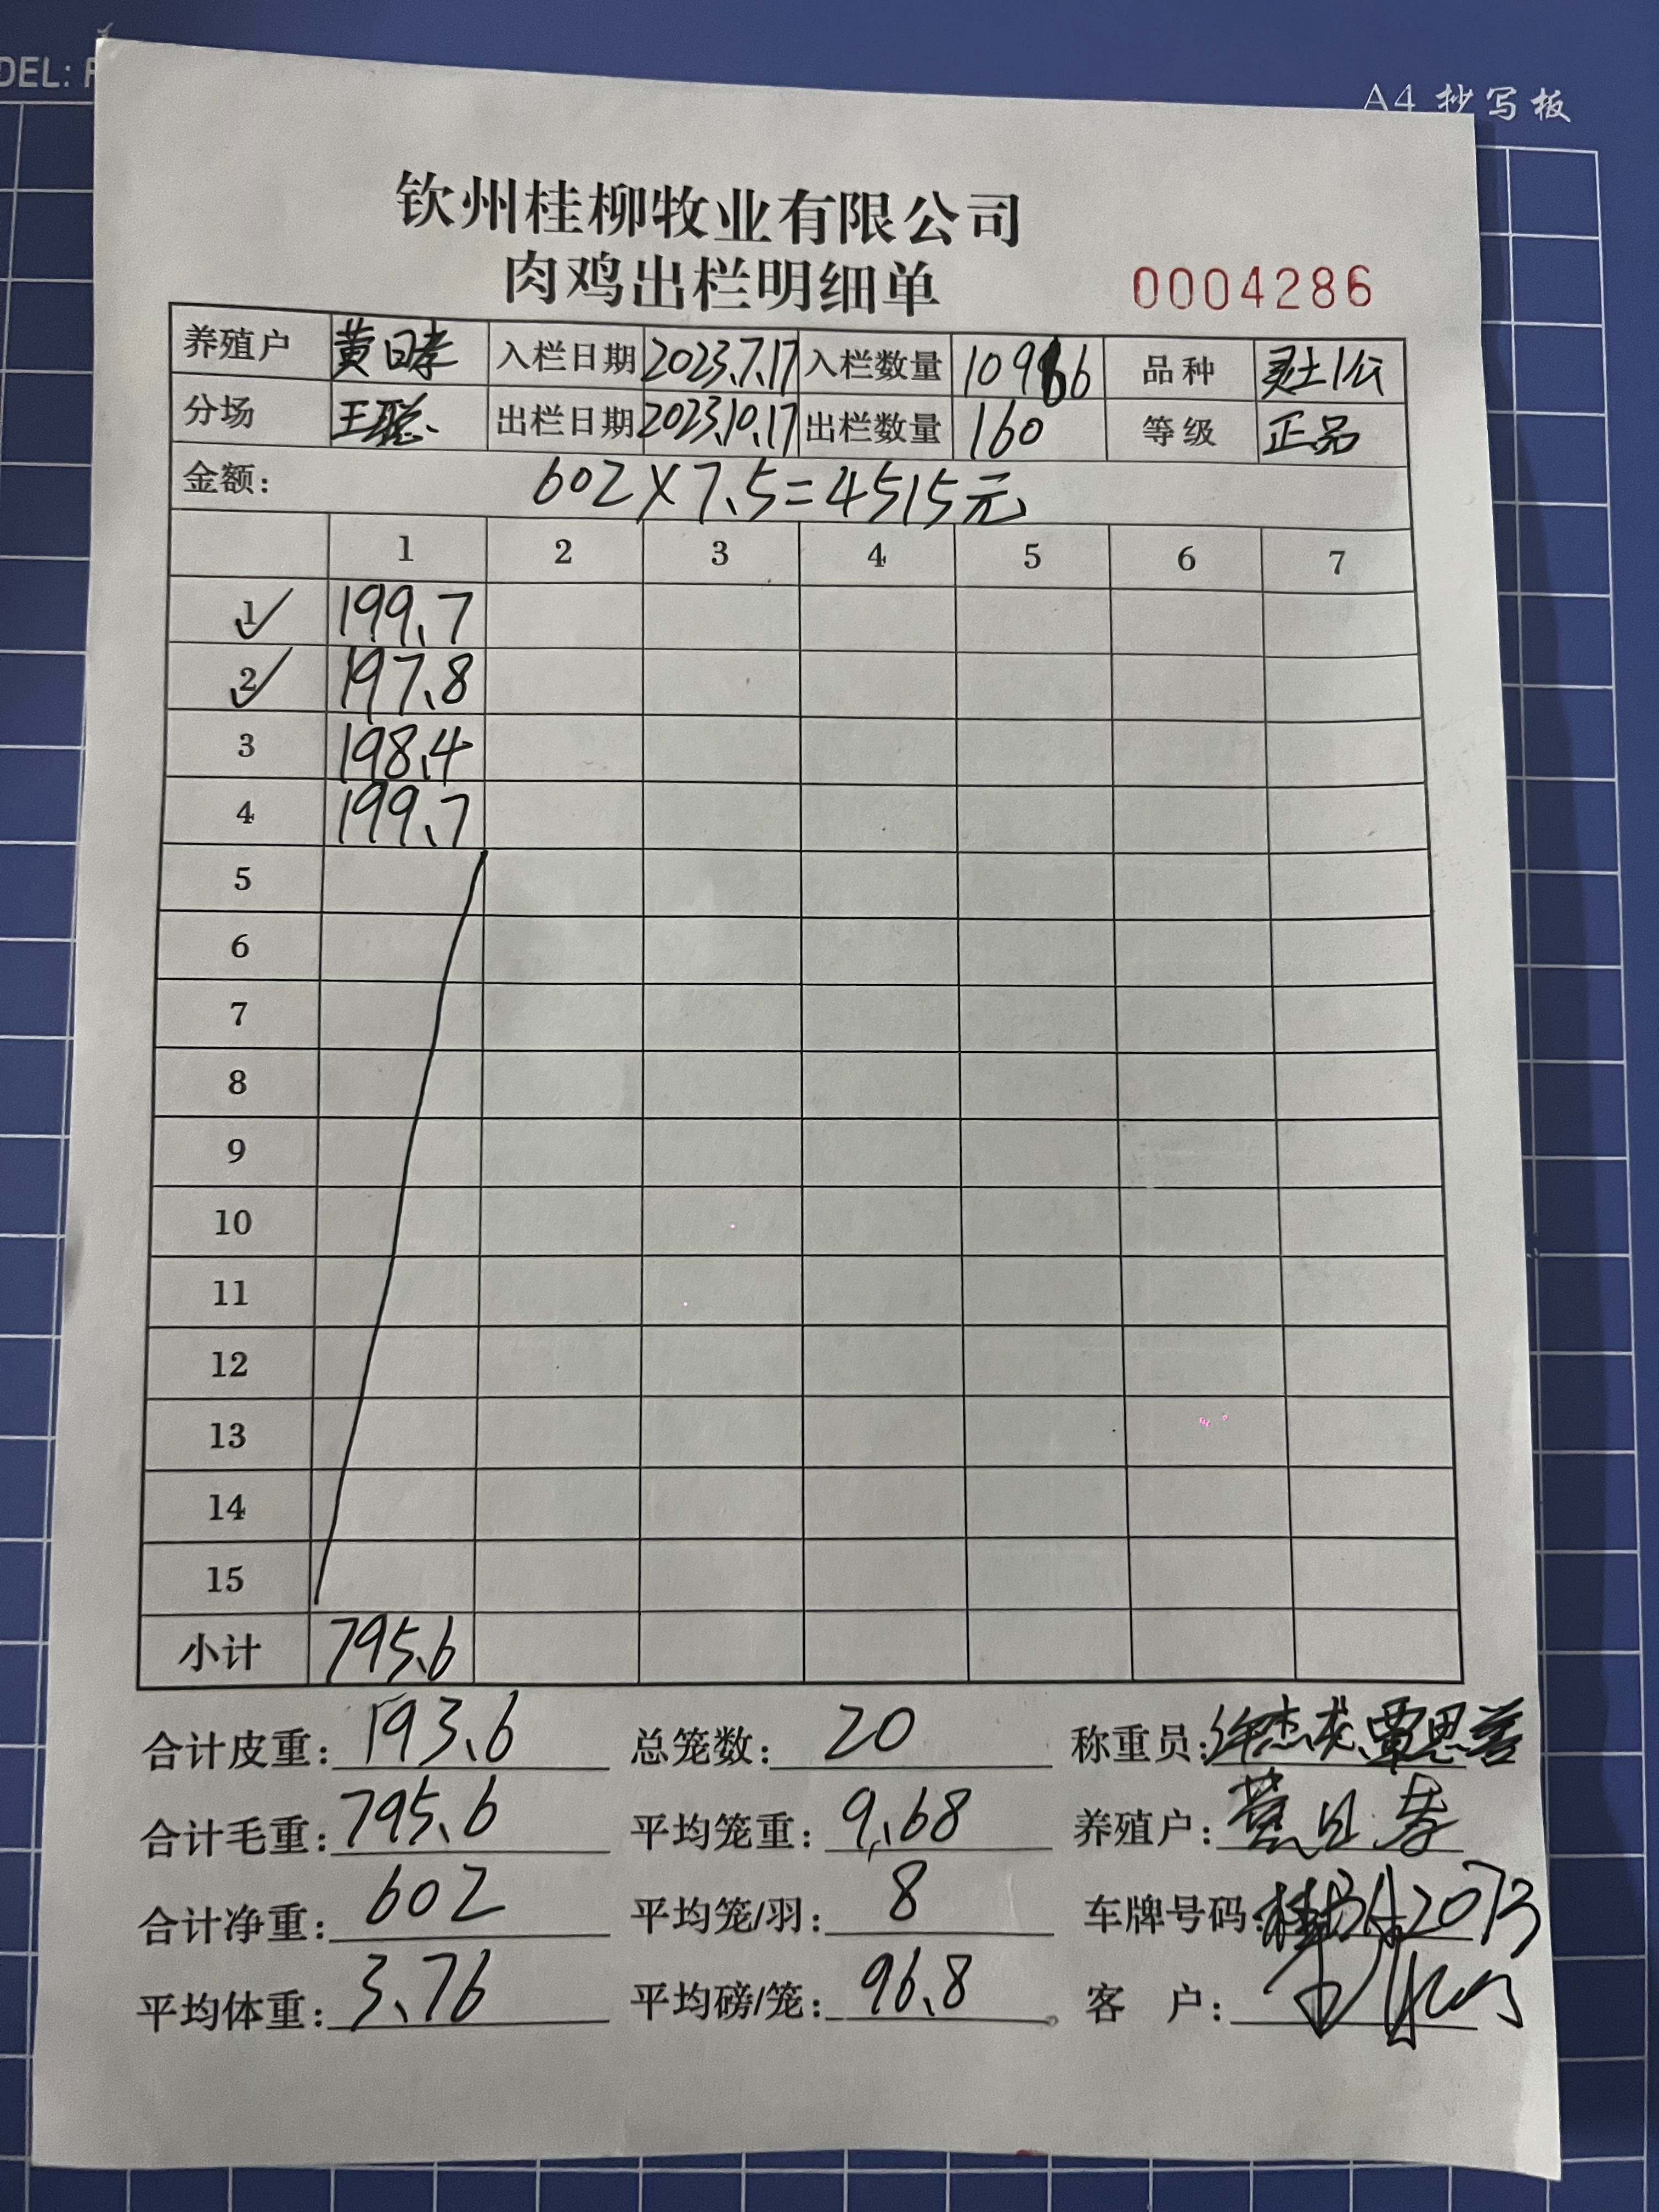 DEL: F
A4 抄写板
钦州桂柳牧业有限公司
肉鸡出栏明细单 0004286
养殖户 黄日孝 入栏日期 2023.7.17 入栏数量 10986 品种 灵土1公
分场 王聪 出栏日期 2023.10.17 出栏数量 160 等级 正品
金额: 602×7.5=4515元
1 2 3 4 5 6 7
1 199.7
2 197.8
3 198.4
4 199.7
5
6
7
8
9
10
11
12
13
14
15
小计 795.6
合计皮重: 193.6 总笼数: 20 称重员:
合计毛重: 795.6 平均笼重: 9.68 养殖户: 黄日孝
合计净重: 602 平均笼/羽: 8 车牌号码:
平均体重: 3.76 平均磅/笼: 96.8 客 户: